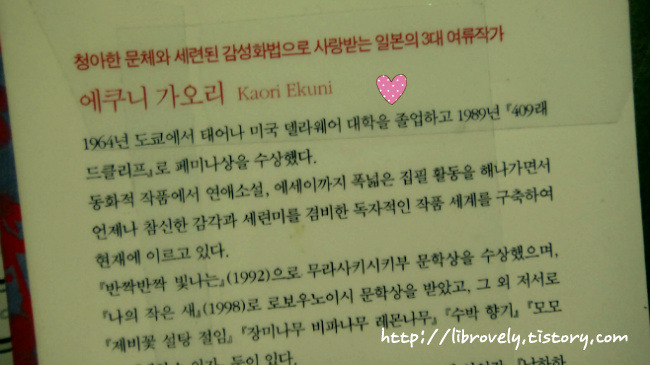 청아한 문체와 세련된 감성화법으로 사랑받는 일본의 3대 여류작가
에쿠니 가오리 Kaori Ekuni
1964년 도쿄에서 태어나 미국 델라웨어 대학을 졸업하고 1989년 『409래
드클리프』로 페미나상을 수상했다.
동화적 작품에서 연애소설, 에세이까지 폭넓은 집필 활동을 해나가면서
언제나 참신한 감각과 세련미를 겸비한 독자적인 작품 세계를 구축하여
현재에 이르고 있다.
『반짝반짝 빛나는』(1992)으로 무라사키시키부 문학상을 수상했으며,
『나의 작은 새』(1998)로 로보우노이시 문학상을 받았고, 그 외 저서로
『제비꽃 설탕 절임』 『장미나무 비파나무 레몬나무』 『수박 향기』 『모모
등이 있다.
http://librovely.tistory.com